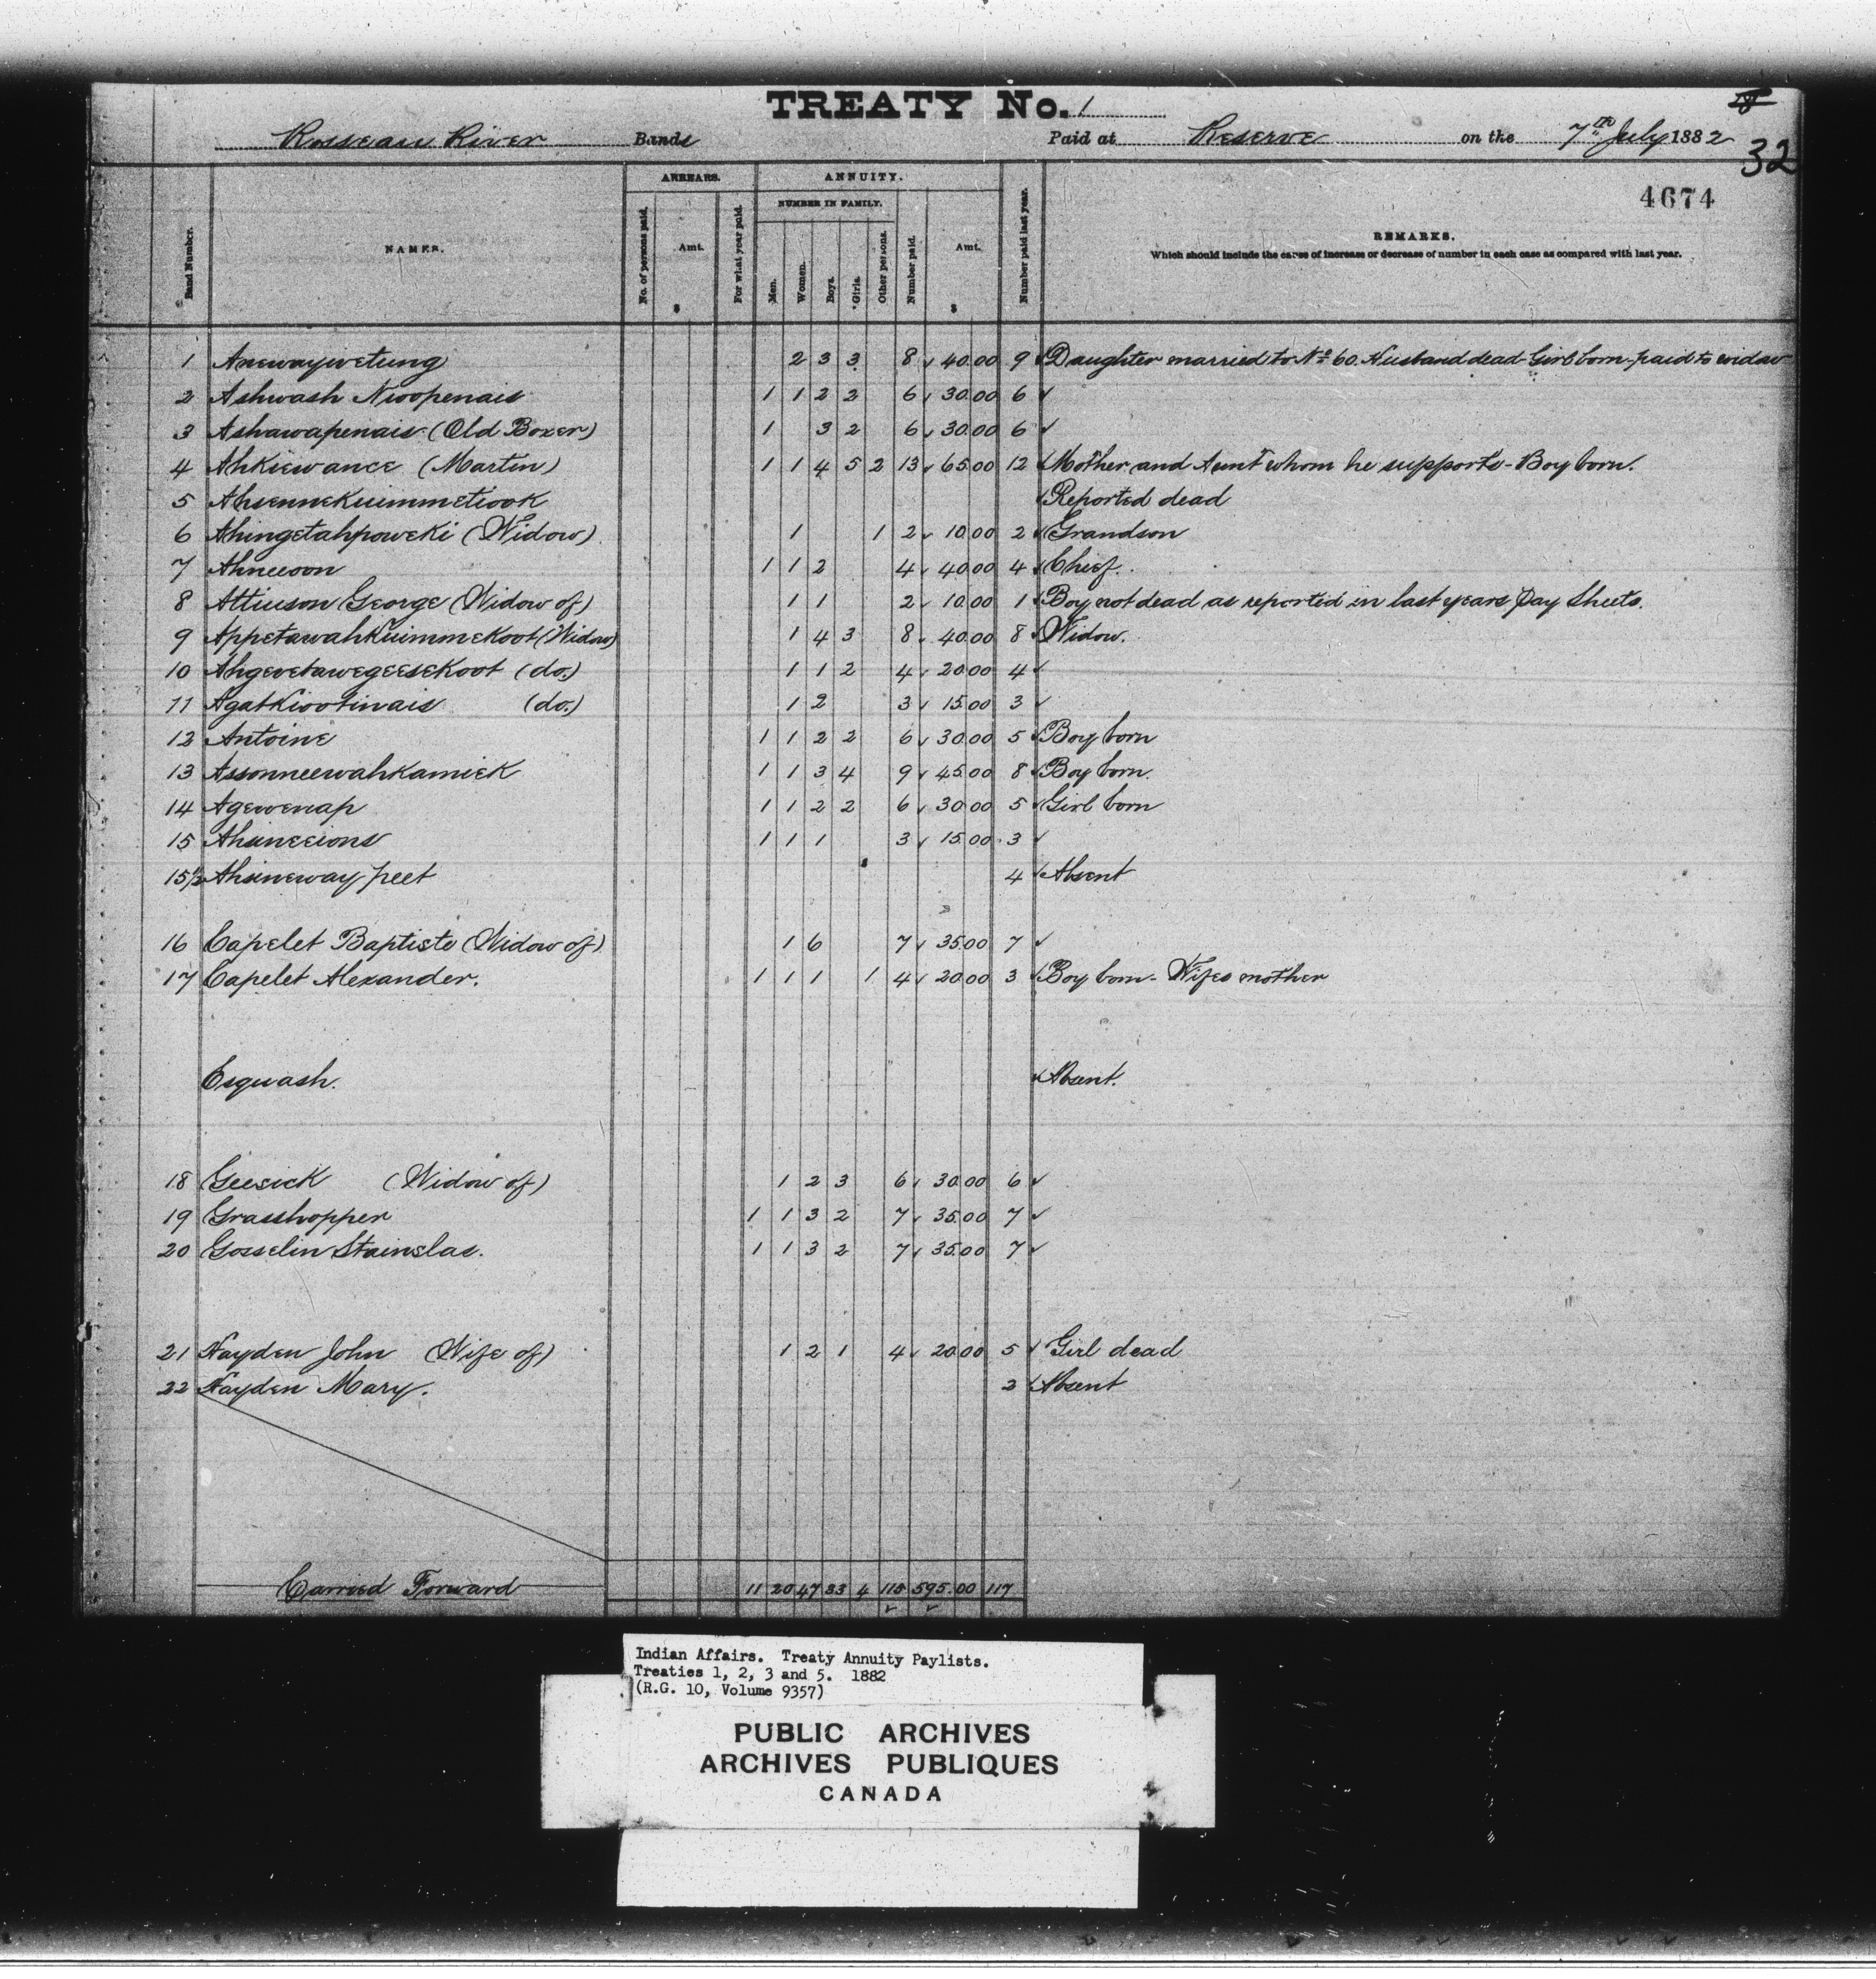 TREATY No. 1
Rosseau River Bands Paid at Reserve on the 7th July 1882
32
4674
ARREARS. ANNUITY.
NUMBER IN FAMILY.
Band Number. NAMES. No. of persons paid. Amt. $ For what year paid. Men. Women. Boys. Girls. Other persons. Number paid. Amt. $ Number paid last year. REMARKS.
Which should include the cause of increase or decrease of number in each case as compared with last year.
1 Anewaywetung 2 3 3 8 40.00 9 Daughter married to No. 60. Husband dead - Girl born - paid to widow
2 Ashwash Nwopenais 1 1 2 2 6 30.00 6
3 Ashawapenais (Old Boxer) 1 3 2 6 30.00 6
4 Ahkiewance (Martin) 1 1 4 5 2 13 65.00 12 Mother and Aunt whom he supports - Boy born.
5 Ahsennekuimmetiook Reported dead
6 Ahingetahpoweki (Widow) 1 1 2 10.00 2 Grandson
7 Ahneeoon 1 1 2 4 40.00 4 Chief.
8 Attinson George (Widow of) 1 1 2 10.00 1 Boy not dead as reported in last years Pay Sheets.
9 Appetawahkuimmekoot (Widow) 1 4 3 8 40.00 8 Widow.
10 Ahgevetawegeesekoot (do.) 1 1 2 4 20.00 4
11 Agatkiootinais (do.) 1 2 3 15.00 3
12 Antoine 1 1 2 2 6 30.00 5 Boy born
13 Assonneewahkamick 1 1 3 4 9 45.00 8 Boy born.
14 Agewenap 1 1 2 2 6 30.00 5 Girl born
15 Ahsineeions 1 1 1 3 15.00 3
15½ Ahsineway peet 4 Absent
16 Capelet Baptiste (Widow of) 1 6 7 35.00 7
17 Capelet Alexander. 1 1 1 1 4 20.00 3 Boy born - Wifes mother
Esquash. Absent.
18 Geesick (Widow of) 1 2 3 6 30.00 6
19 Grasshopper 1 1 3 2 7 35.00 7
20 Gosselin Stainslas. 1 1 3 2 7 35.00 7
21 Hayden John (Wife of) 1 2 1 4 20.00 5 Girl dead
22 Hayden Mary. 2 Absent
Carried Forward 11 20 47 33 4 115 595.00 117
Indian Affairs. Treaty Annuity Paylists.
Treaties 1, 2, 3 and 5. 1882
(R.G. 10, Volume 9357)
PUBLIC ARCHIVES
ARCHIVES PUBLIQUES
CANADA